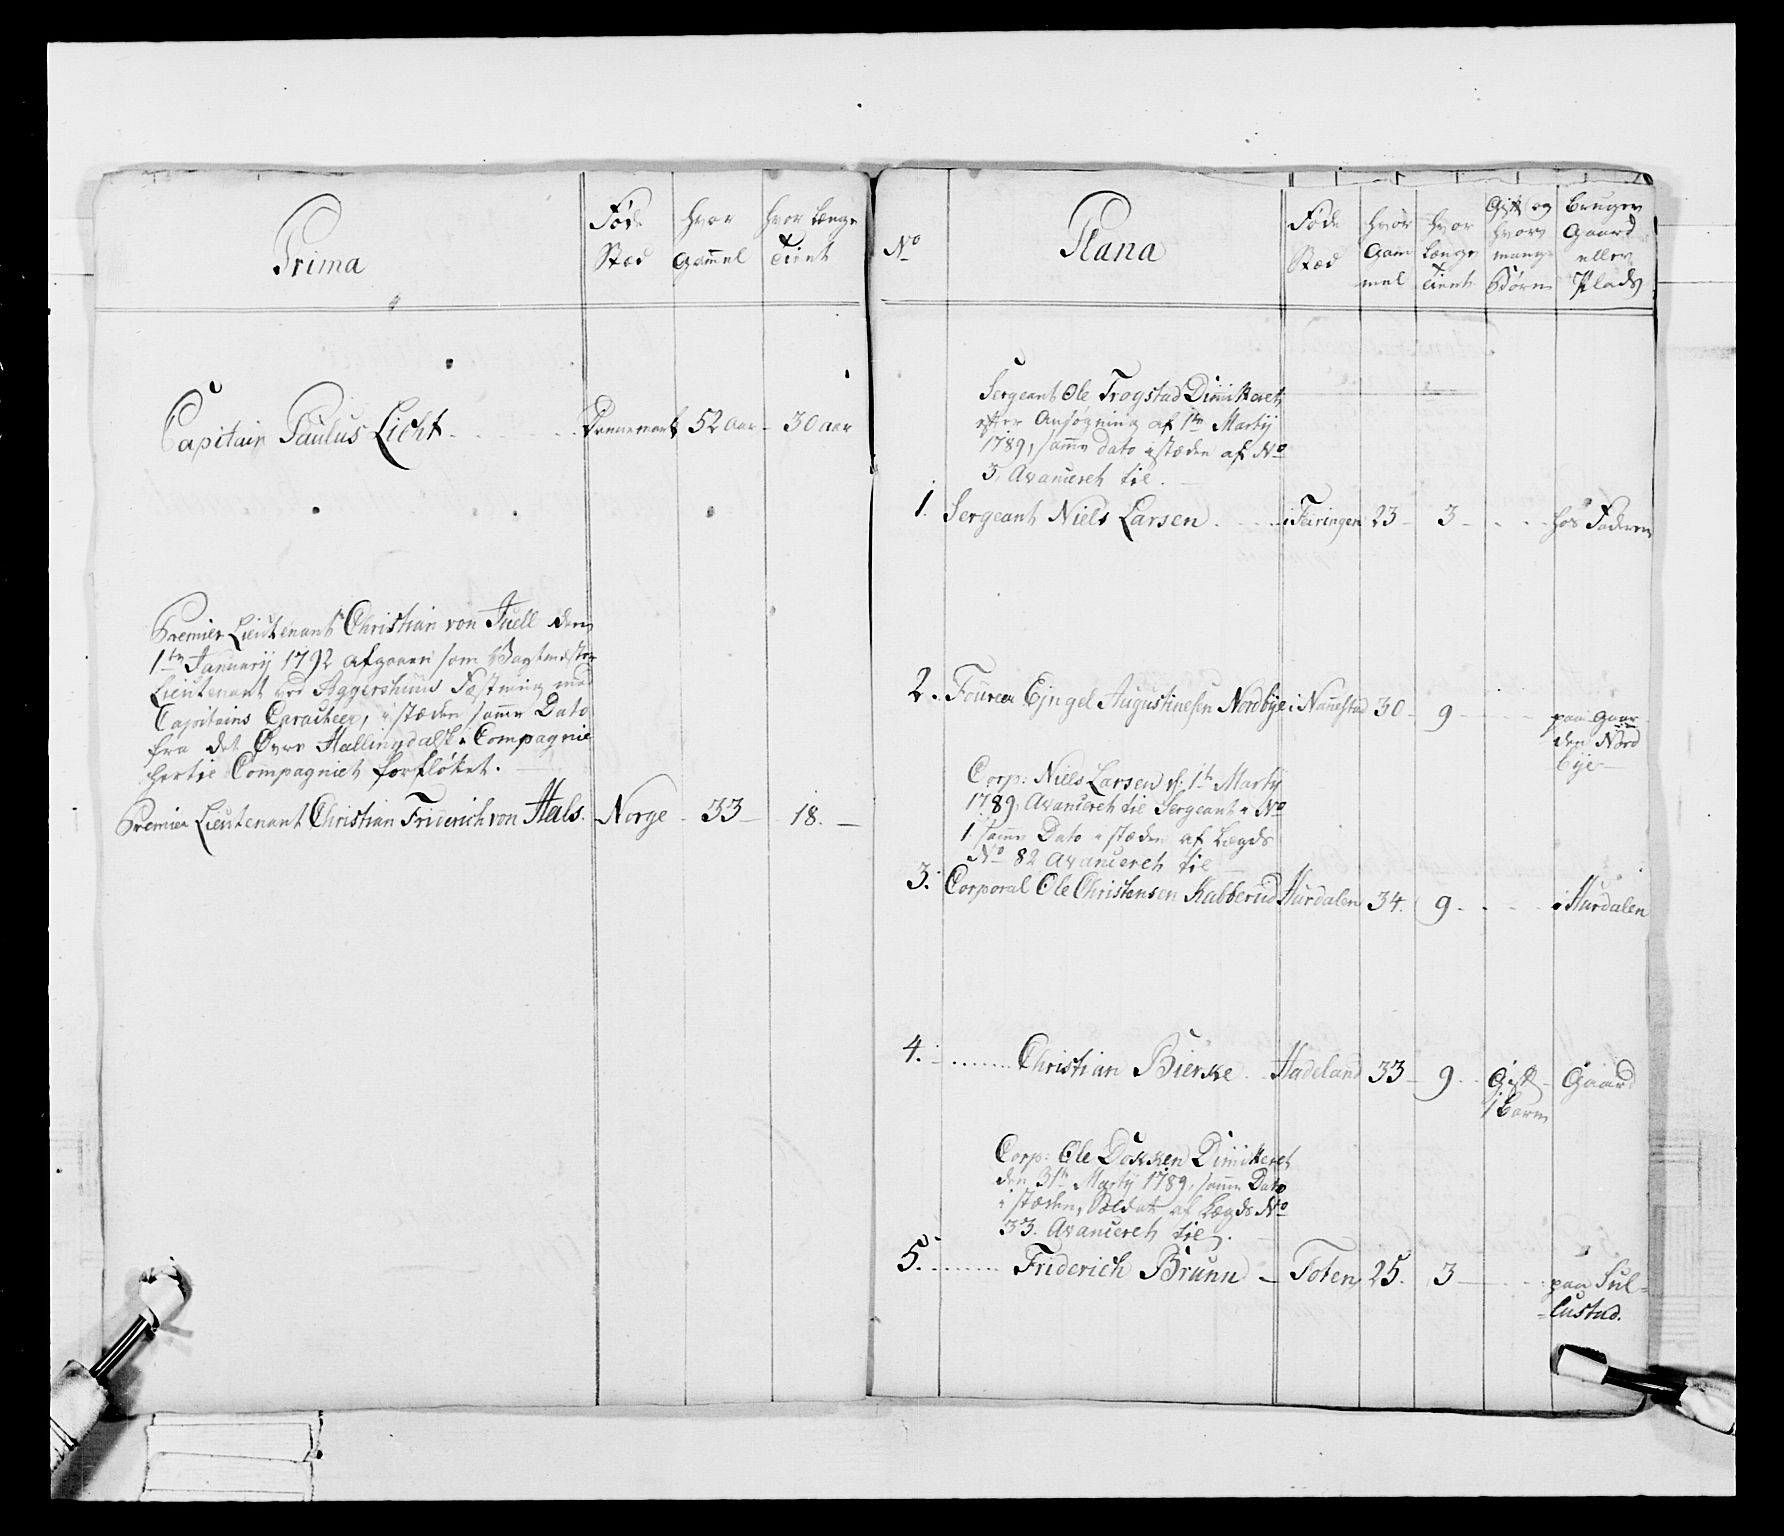 Prima
Føde Stæd
hvor Gam̄el
hvor længe Tient
Capitain Paulus Licht
Dannemark
52 aar
30 aar
Premier Lieutenant Christian von Juell den
1te January 1792 afgaaen som Vagtmester
Lieutenant ved Aggershuus Fæstning med
Capitains Caracteer, i stæden sam̄e Dato
fra det Øvre Hallingdalske Compagnie
hertil Compagniet forfløttet.
Premier Lieutenant Christian Friderich von Hals.
Norge
33
18.
No
Plana
Føde Stæd
hvor Gam mel
hvor længe Tient
Gift og hvor mange Børn
bruger Gaard eller Plads
Sergeant Ole Trogstad Dimitteret
efter Ansøgning af 1te Martij
1789, sam̄e dato i stæden af No
3, Avanceret til.
1. Sergeant Niels Larsen
i Feiringen
23
3
hos Faderen
2. Foureer Engel Augustinesen Nordbye
i Nan̄estad
30
9
paa Gaar
den Nord
bye
Corp: Niels Larsen d: 1te Martij
1789, Avanceret til Sergeant No
1. sam̄e Dato i stæden af Lægds
No 82 Avanceret til
3. Corporal Ole Christensen Rabberud
Hurdalen
34.
9
i Hurdalen
4. Christian Bierke
Hadeland
33
9
Gift
1 barn
Gaard
Corp: Ole Dokken Dimitteret
den 31te Martij 1789, sam̄e Dato
i stæden, Soldat af Lægds No
33. Avanceret til.
5. Friderich Brunn
Toten
25.
3
paa Sul-
-lustad.